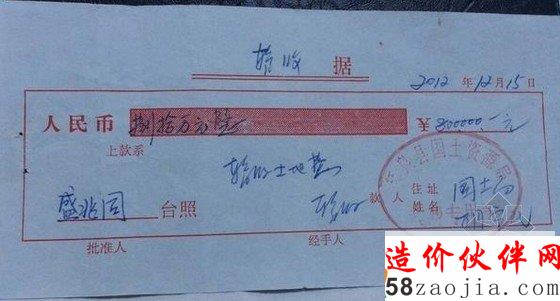 收据
2012年12月15日
人民币 捌拾万元 ¥800000.元
上款系
土地
盛 同 台照 款人 住址 国土局
姓名
批准人 经手人
县国土资源局
造价伙伴网
58zaojia.com